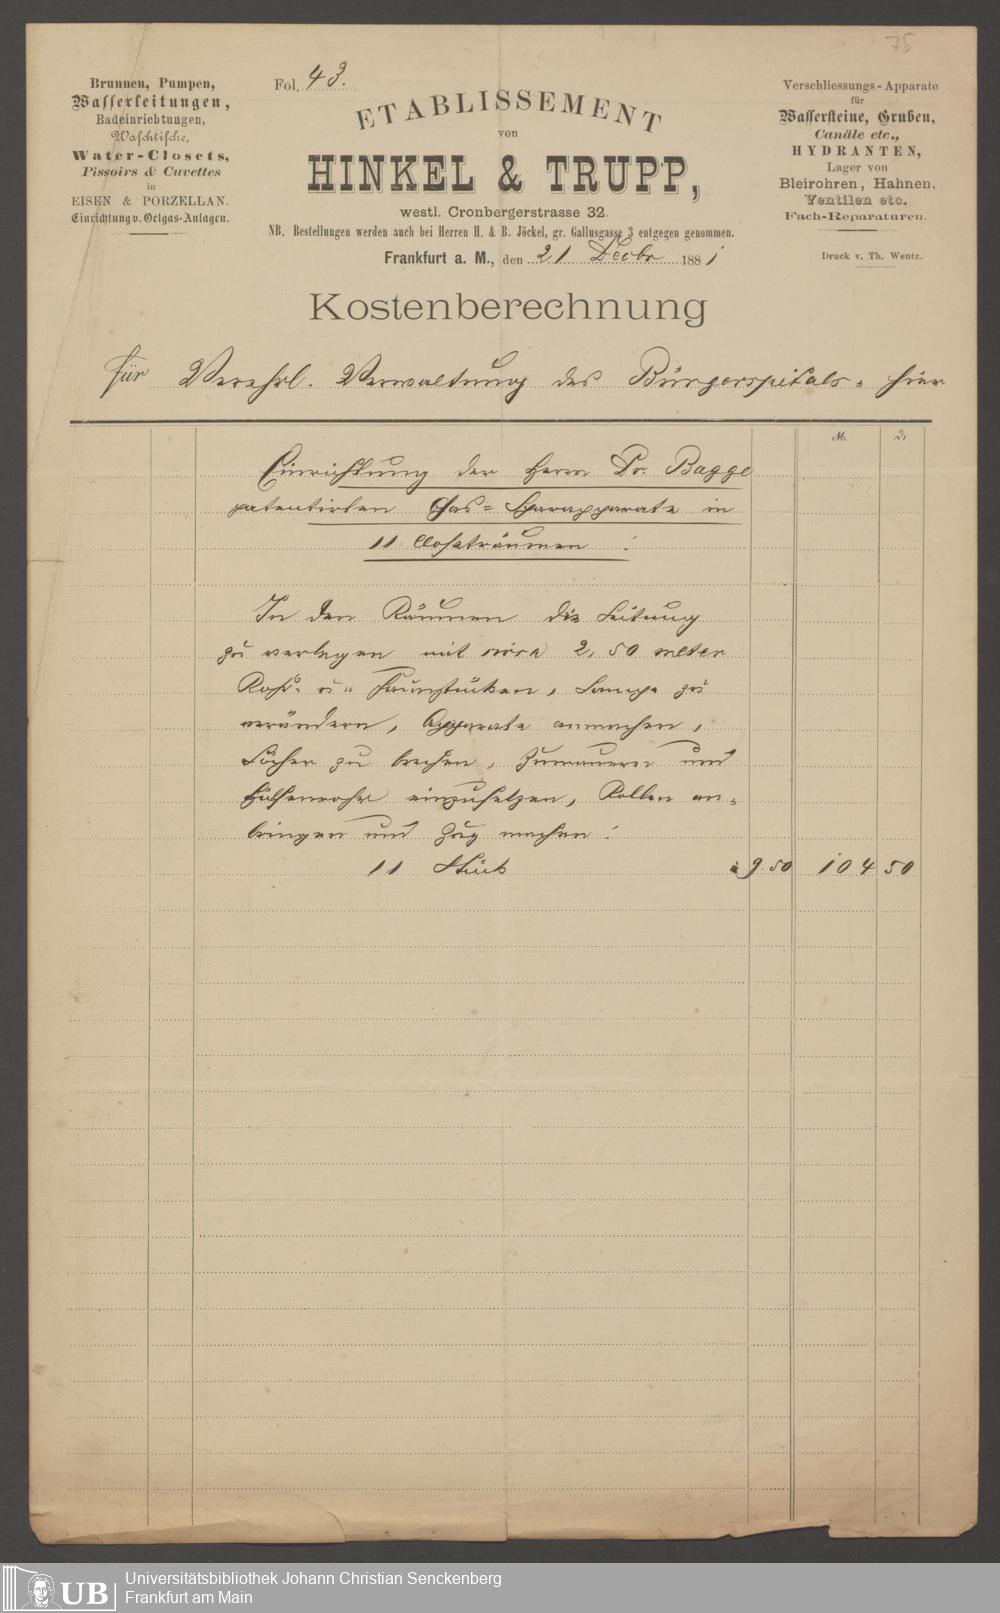 75
Brunnen, Pumpen,
Wasserleitungen,
Badeinrichtungen,
Waschtische,
Water-Closets,
Pissoirs & Cuvettes
in
EISEN & PORZELLAN.
Einrichtung v. Oelgas-Anlagen.
Fol. 43.
ETABLISSEMENT
von
HINKEL & TRUPP,
westl. Cronbergerstrasse 32.
NB. Bestellungen werden auch bei Herren H. & B. Jöckel, gr. Gallusgasse 3 entgegen genommen.
Frankfurt a. M., den 21 Decbr 1881
Verschliessungs-Apparate
für
Wassersteine, Gruben,
Canäle etc.,
HYDRANTEN,
Lager von
Bleirohren, Hahnen,
Ventilen etc.
Fach-Reparaturen.
Druck v. Th. Wentz.
Kostenberechnung
für Verehrl. Verwaltung des Bürgerspitals, hier
M. d.
Einrichtung der Herrn Dr. Bagge
patentirten Gas= Sparapparate in
11 Closeträumen :
In den Räumen die Leitung
zu verlegen mit circa 2,50 meter
Rohr u. Façonstücken, Lampe zu
verändern, Apparate anmachen,
Löcher zu brechen, Zumauern und
Hülsenrohr einzusetzen, Rollen an=
bringen und Zug machen :
11 Stück à 9.50 104 50
Universitätsbibliothek Johann Christian Senckenberg
Frankfurt am Main
UB